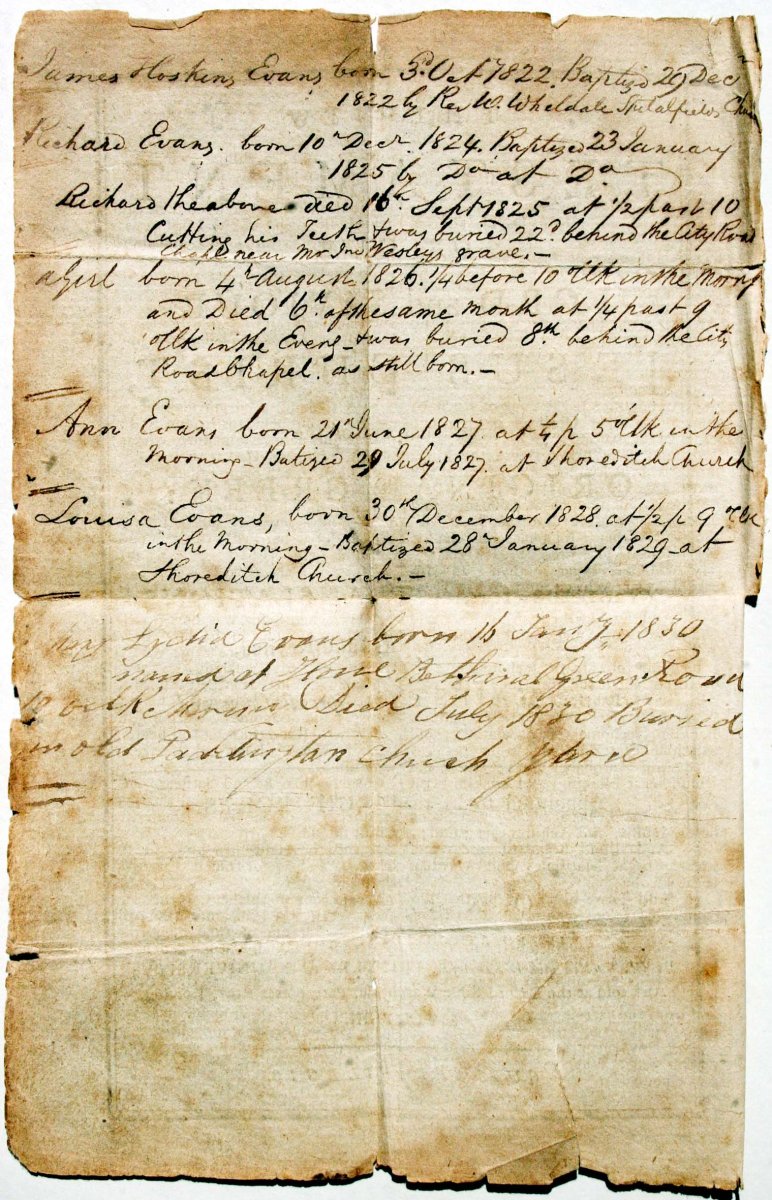 James Hoskins Evans born 3d. Oct 1822. Baptized 29 Decr
1822 by Rev W. Wheldale Spitalfields
Richard Evans. born 10th Decr. 1824. Baptized 23 January
1825 by Do at Do
Richard the above died 16th. Sept 1825 at 1/2 past 10
Cutting his Teeth & was buried 22d. behind the City Road
Chapel near Mr Jno Wesleys grave. -
a Girl born 4th August 1826. 1/4 before 10 oClk in the Morng
and Died 6th. of the same month at 1/4 past 9
oClk in the Eveng - & was buried 8th. behind the City
Road Chapel. as still born. -
Ann Evans born 21st June 1827. at 1/4 p 5 oClk in the
Morning - Batized 29 July 1827. at Shoreditch Church
Louisa Evans, born 30th December 1828. at 1/2 p 9 oClk
in the Morning - Baptized 28th January 1829 - at
Shoreditch Church. -
Lydia Evans born 16 Jany. 1830
named at Bethnal Green Road
Died July 1830 Buried
in old Paddington Chuch yard